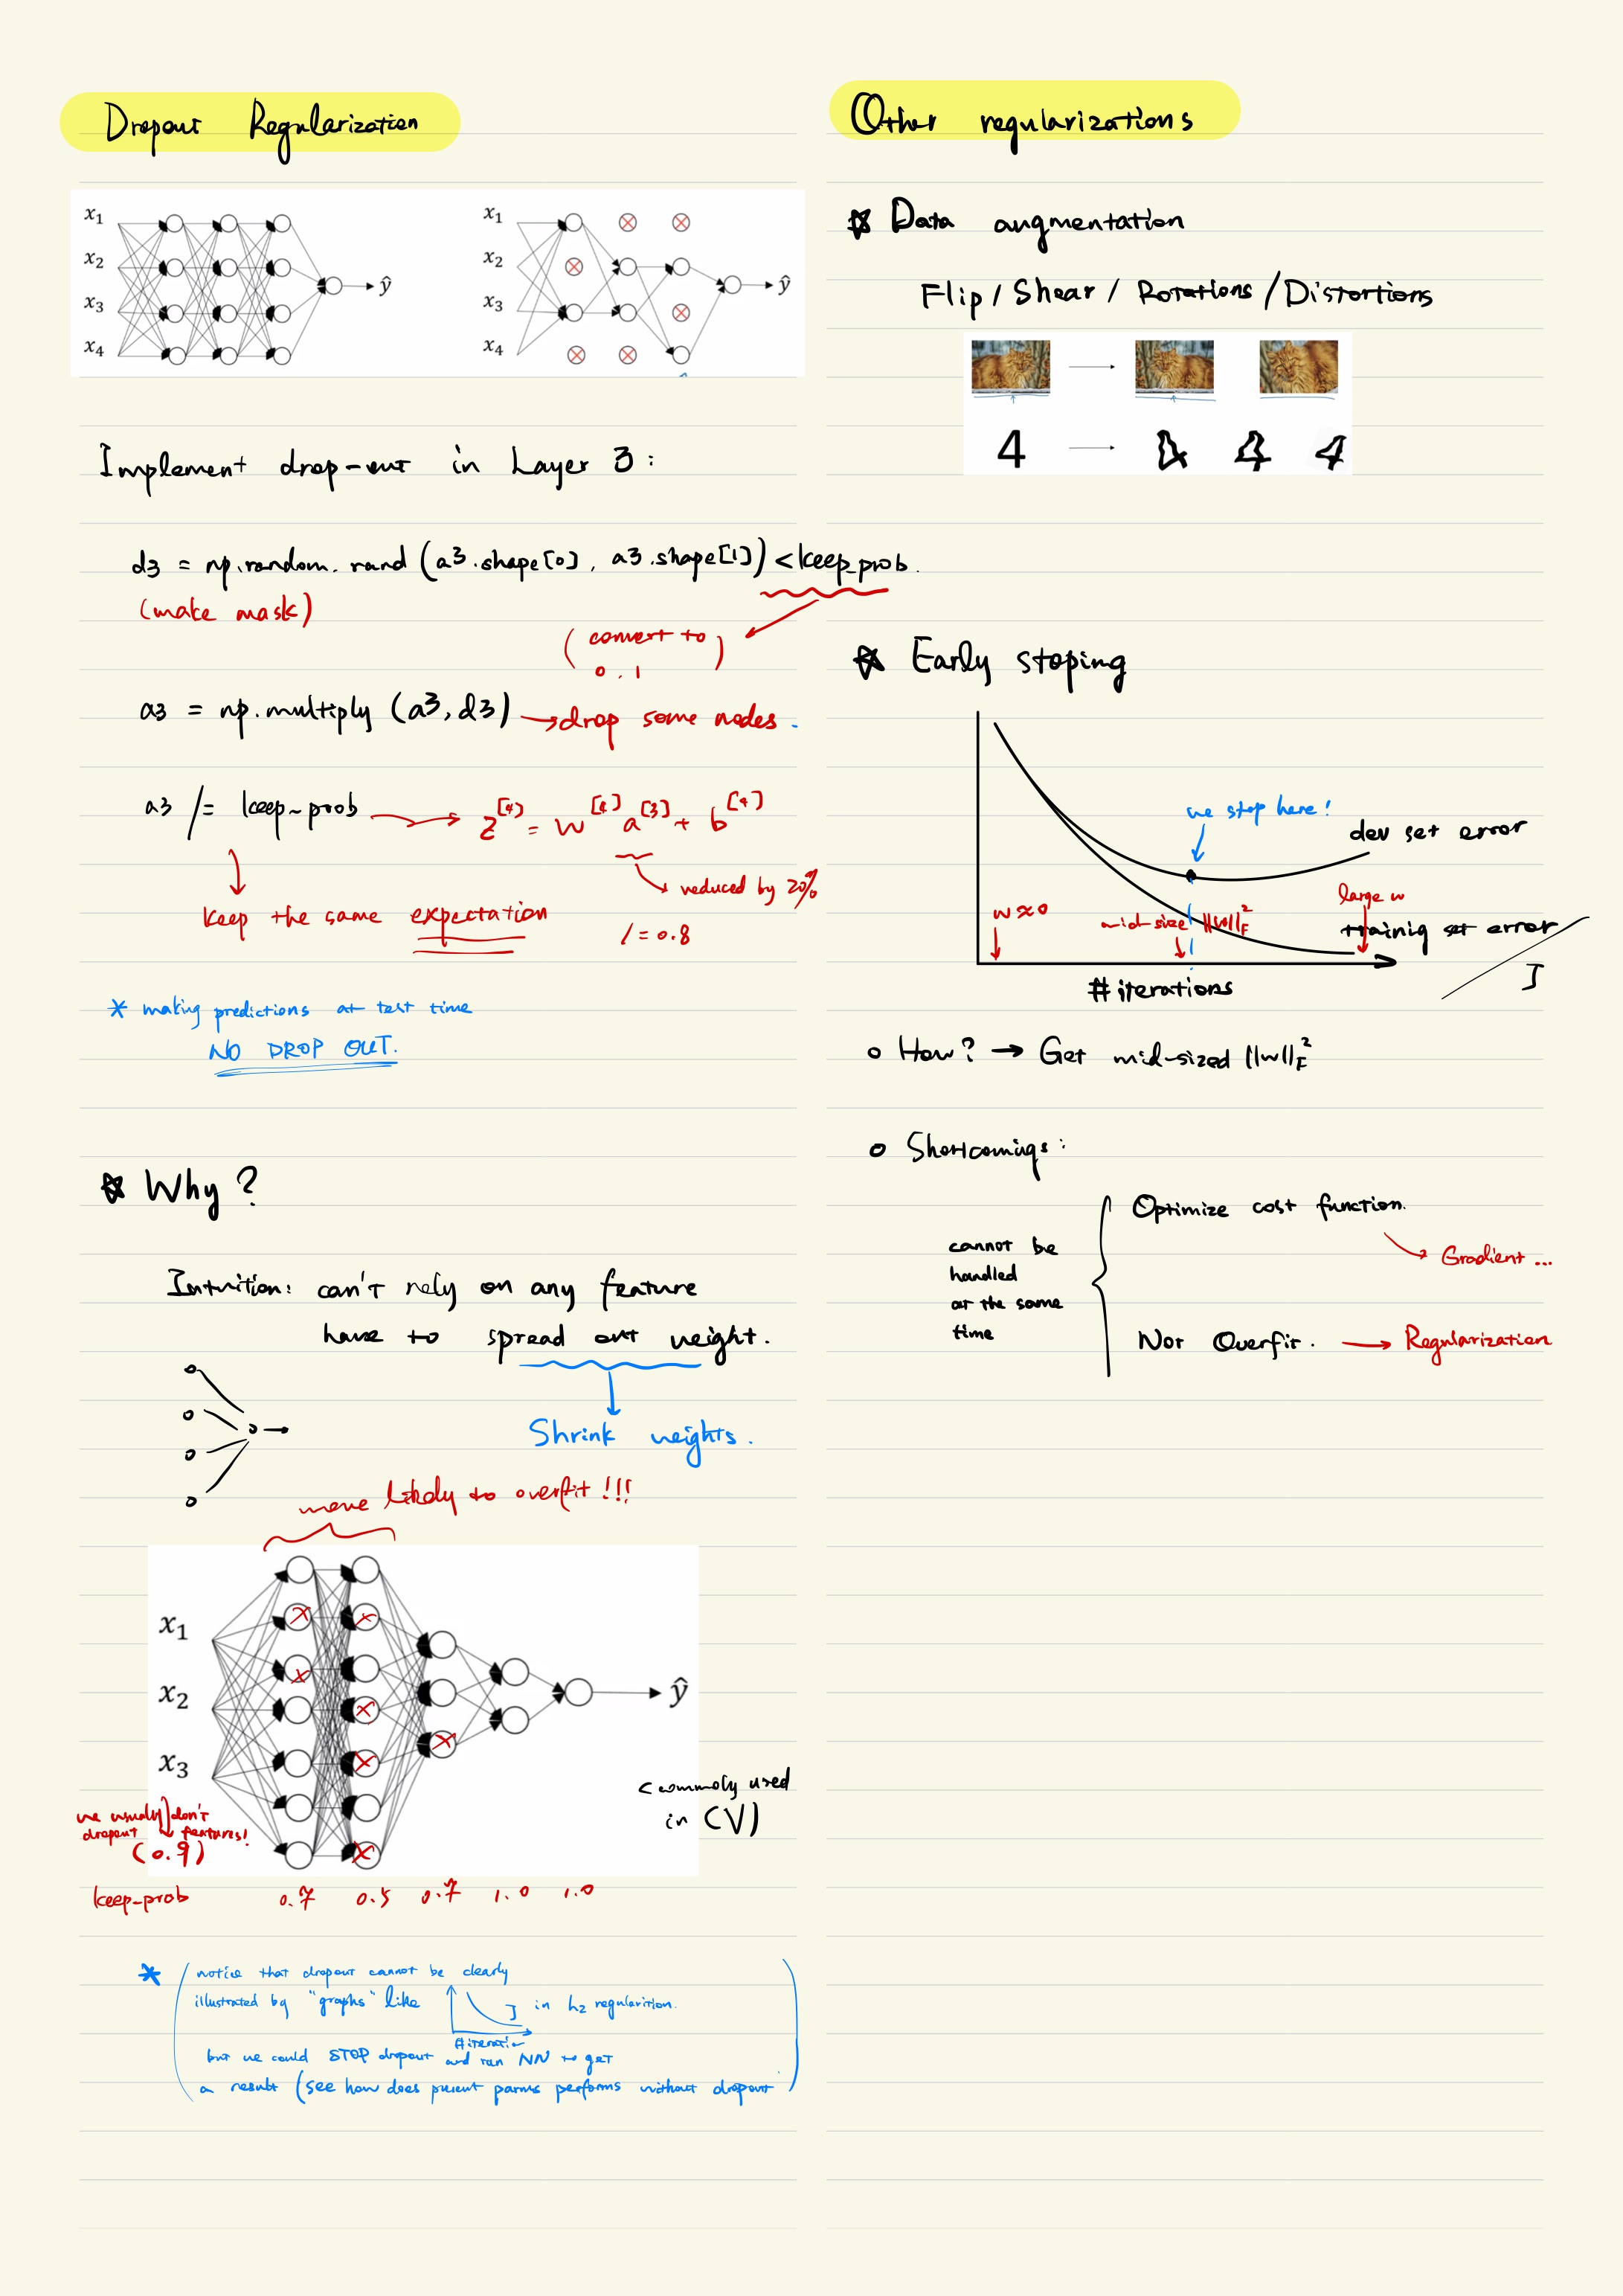 Dropout Regularization
x1
x2
x3
x4
ŷ
x1
x2
x3
x4
ŷ
Implement drop-out in Layer 3:
d3 = np.random.rand (a3.shape[0], a3.shape[1]) < keep_prob.
(make mask)
( convert to
0, 1 )
a3 = np.multiply (a3, d3) → drop some nodes.
a3 /= keep-prob → z[4] = w[4] a[3] + b[4]
→ reduced by 20%
keep the same expectation
/= 0.8
* making predictions at test time
NO DROP OUT.
☆ Why?
Intuition: can't rely on any feature
have to spread out weight.
Shrink weights.
more likely to overfit !!!
x1
x2
x3
ŷ
we usually don't
dropout features!
(0.9)
(commoly used
in CV)
keep-prob 0.7 0.5 0.7 1.0 1.0
* (notice that dropout cannot be clearly
illustrated by "graphs" like J in L2 regularition.
#iteratio
but we could STOP dropout and run NN to get
a result (see how does present parms performs without dropout)
Other regularizations
☆ Data augmentation
Flip / Shear / Rotations / Distortions
4 → 4 4 4
☆ Early stoping
we stop here!
dev set error
w≈0
mid-size ||w||²F
large w
trainig set error / J
#iterations
○ How? → Get mid-sized ||w||²F
○ Shortcomings:
cannot be
handled
at the same
time
Optimize cost function.
→ Gradient ...
Not Overfit. → Regularization